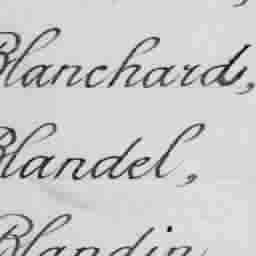 Blanchard,
Blandel,
Blandin